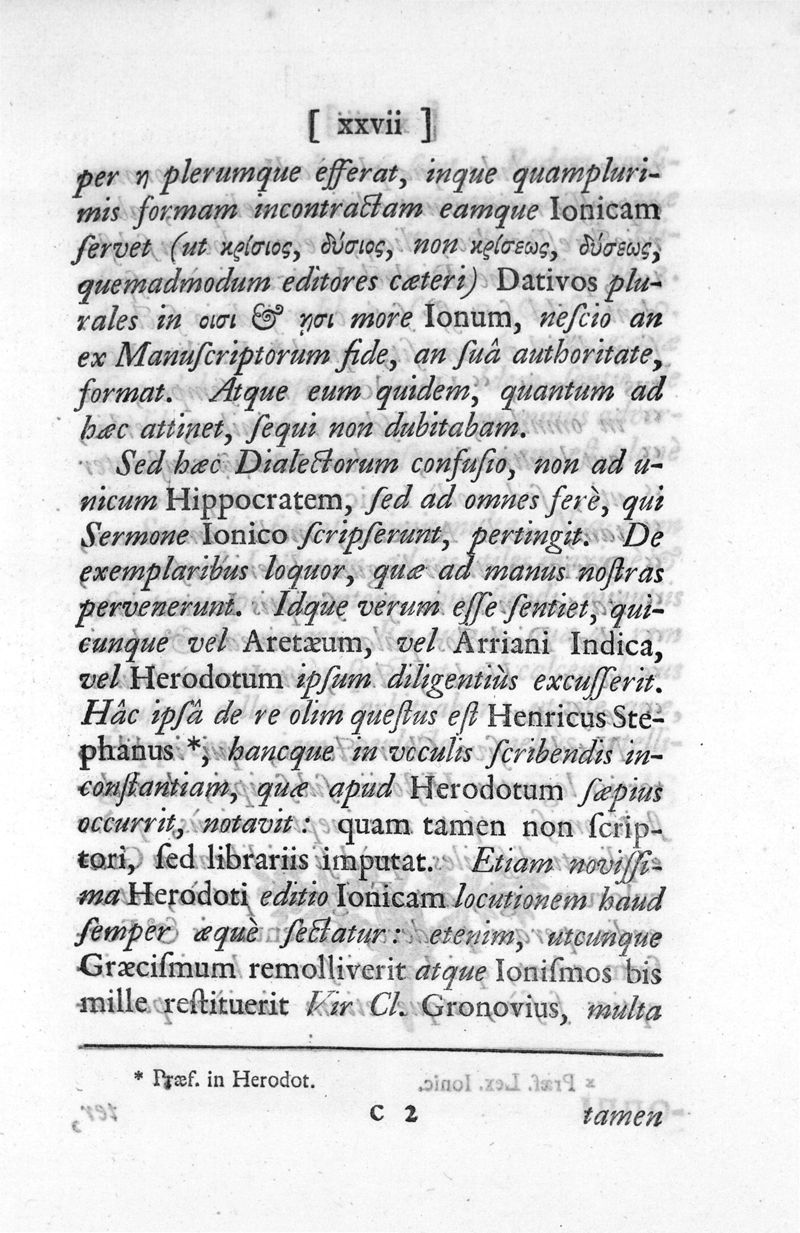 [ xxvii ]
per η plerumque efferat, inque quampluri-
mis formam incontractam eamque Ionicam
ſervet (ut κρίσιος, δύσιος, non κρίσεως, δύσεως,
quemadmodum editores cæteri) Dativos plu-
rales in οισι & ησι more Ionum, neſcio an
ex Manuſcriptorum fide, an ſuâ authoritate,
format. Atque eum quidem, quantum ad
hæc attinet, ſequi non dubitabam.
Sed hæc Dialectorum confuſio, non ad u-
nicum Hippocratem, ſed ad omnes ferè, qui
Sermone Ionico ſcripſerunt, pertingit. De
exemplaribus loquor, quæ ad manus noſtras
pervenerunt. Idque verum eſſe ſentiet, qui-
cunque vel Aretæum, vel Arriani Indica,
vel Herodotum ipſum diligentiùs excuſſerit.
Hâc ipſâ de re olim queſtus eſt Henricus Ste-
phanus *, hancque in voculis ſcribendis in-
conſtantiam, quæ apud Herodotum ſæpius
occurrit, notavit: quam tamen non ſcrip-
tori, ſed librariis imputat. Etiam noviſſi-
ma Herodoti editio Ionicam locutionem haud
ſemper æquè ſectatur: etenim, utcunque
Græciſmum remolliverit atque Ioniſmos bis
mille reſtituerit Vir Cl. Gronovius, multa
* Præf. in Herodot.
C 2
tamen